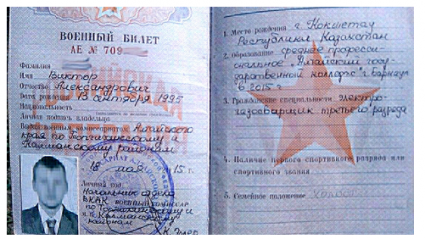 ВОЕННЫЙ БИЛЕТ
АЕ № 709
Фамилия
Имя Виктор
Отчество Александрович
Дата рождения 13 сентября 1995
Личная подпись владельца
Алтайского
края по
районам
18 мая 15 г.
Начальник отдела
ВКАК
по
районам
1. Место рождения г. Кокшетау
Республики Казахстан
2. Образование среднее професси-
ональное "Алтайский госу-
дарственный колледж" г. Барнаул
в 2015 г.
3. Гражданские специальности электро-
газосварщик третьего разряда
4. Наличие первого спортивного разряда или
спортивного звания
5. Семейное положение холост